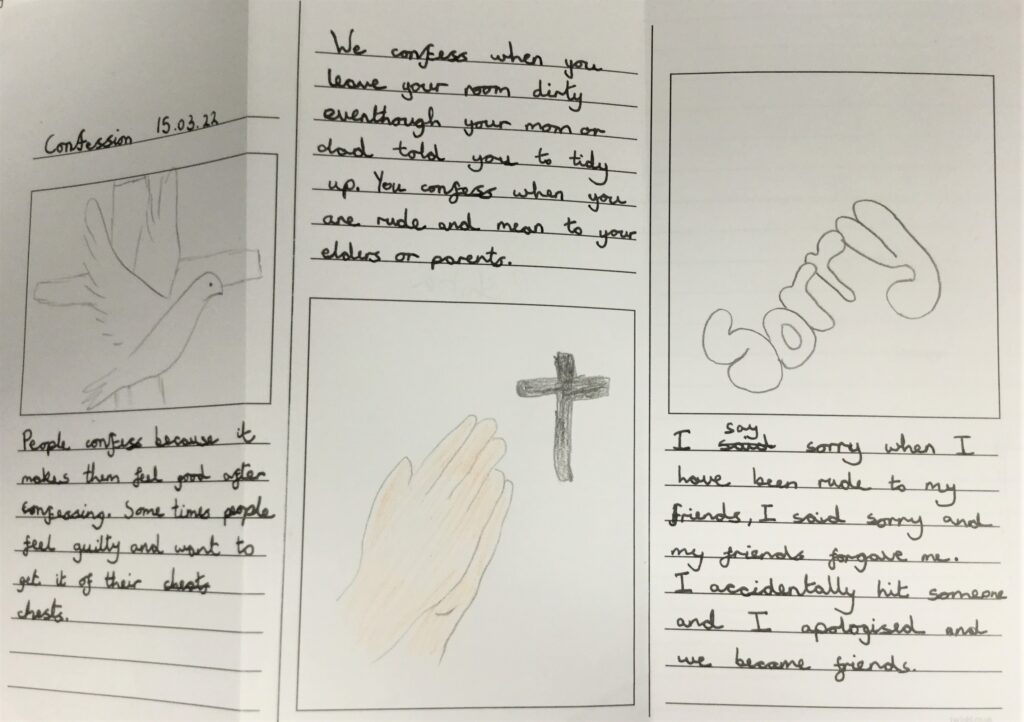 Confession 15.03.22
People confess because it
makes them feel good after
confessing. Some times people
feel guilty and want to
get it of their chests
chests.
We confess when you
leave your room dirty
eventhough your mom or
dad told you to tidy
up. You confess when you
are rude and mean to your
elders or parents.
Sorry
say
I said sorry when I
have been rude to my
friends, I said sorry and
my friends forgave me.
I accidentally hit someone
and I apologised and
we became friends.